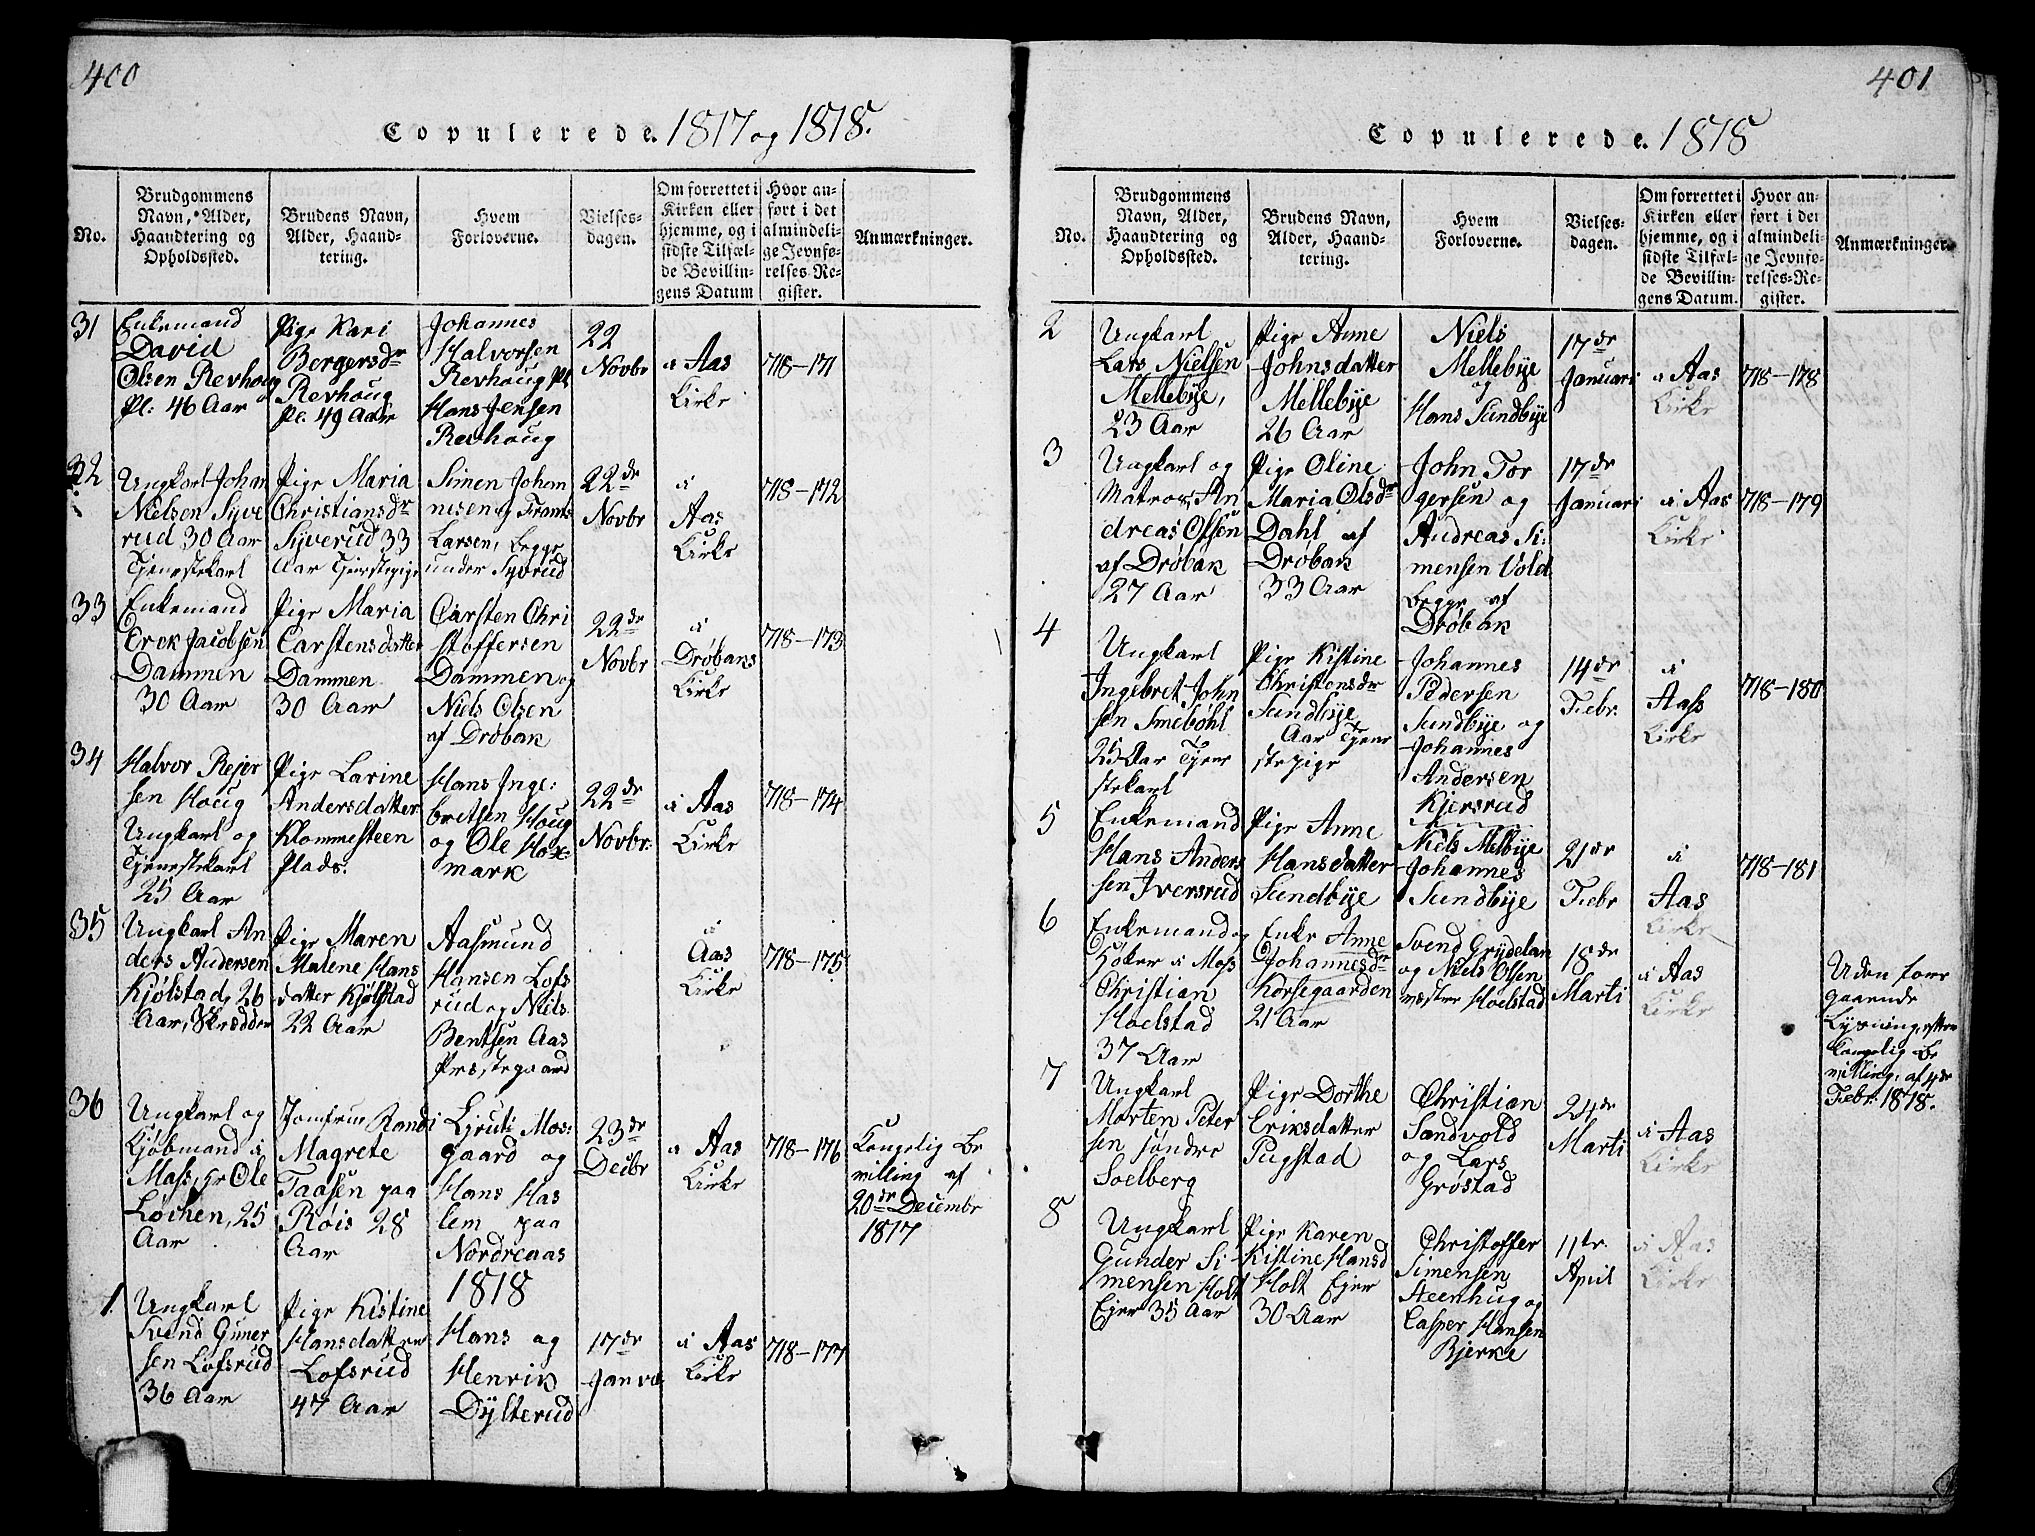 400
Copulerede. 1817 og 1818.
No.
Brudgommens
Navn, Alder,
Haandtering og
Opholdssted.
Brudens Navn,
Alder, Haand-
tering.
Hvem
Forloverne.
Vielses-
dagen.
Om forrettet i
Kirken eller
hjemme, og i
sidste Tilfæl-
de Bevillin-
gens Datum
Hvor an-
ført i det
almindeli-
ge Jevnfø-
relses-Re-
gister.
Anmærkninger.
31
Enkemand
David
Olsen Revhoug
Pl: 46 Aar
Pige Kari
Bergersdr
Revhoug
Pl. 49 Aar
Johannes
Halvorsen
Revhoug Pl
Hans Jensen
Revhoug
22
Novbr
i Aas
Kirke
718-171
32
Ungkarl Johan
Nielsen Syve
rud 30 Aar
Tjenestekarl
Pige Maria
Christiansdr
Syverud 33
Aar Tjenstepige
Simen Johan
nesen og Frants
Larsen, begge
under Syverud
22de
Novbr
i
Aas
Kirke
718-172
33
Enkemand
Erek Jacobsen
Dammen
30 Aar
Pige Maria
Carstensdatter
Dammen
30 Aar
Carsten Chri
stoffersen
Dammen og
Niels Olsen
af Drøbak
22de
Novbr
i
Drøbaks
Kirke
718-173
34
Halvor Rejer
sen Houg
Ungkarl og
Tjenestekarl
25 Aar
Pige Larine
Andersdatter
Klommesteen
Plads.
Hans Inge:
bretsen Houg
og Ole Hox
mark
22de
Novbr:
i Aas
Kirke
718-174
35
Ungkarl An
ders Andersen
Kjølstad, 26
Aar, Skrædder
Pige Maren
Malene Hans
datter Kjølstad
22 Aar
Aasmund
Hansen Lofs
rud og Niels
Bentsen Aas
Præstegaard
i
Aas
Kirke
718-175
36
Ungkarl og
Kjøbmand i
Mass, Hr Ole
Løchen, 25
Aar
Jomfrue Randi
Magrete
Taasen paa
Røis 28
Aar
Ljruti Mos:
gaard og
Hans Has
lem paa
Nordreaas
23de
Decbr
i Aas
Kirke
718-176
Kongelig Be
villing af
20de Decembr
1817
1818
1.
Ungkarl
Svend Guner
sen Lofsrud
36 Aar
Pige Kistine
Hansdatter
Lofsrud
47 Aar
Hans og
Henrik
Dylterud
17de
Janva
i Aas
Kirke
718-177
401
Copulerede. 1818
No.
Brudgommens
Navn, Alder,
Haandtering og
Opholdssted.
Brudens Navn,
Alder, Haand-
tering.
Hvem
Forloverne.
Vielses-
dagen.
Om forrettet i
Kirken eller
hjemme, og i
sidste Tilfæl-
de Bevillin-
gens Datum.
Hvor an-
ført i det
almindeli-
ge Jevnfø-
relses-Re-
gister.
Anmærkninger.
2
Ungkarl
Lars Nielsen
Mellebye,
23 Aar
Pige Anne
Johnsdatter
Mellebye
26 Aar
Niels
Mellebye
og
Hans Sundbye
17de
Januari
i Aas
Kirke
718-178
3
Ungkarl og
Matros, An
dreas Olsen
af Drøbak
27 Aar
Pige Oline
Maria Olsdr
Dahl af
Drøbak
33 Aar
John Tor
gersen og
Andreas Si:
mensen Vold
begge af
Drøbak
17de
Januari
i Aas
Kirke
718-179
4
Ungkarl
Ingebret John
sen Smebøhl
25 Aar Tjene
stekarl
Pige Kistine
Christensdr
Sundbye
Aar Tjene
stepige
Johannes
Pedersen
Sundbye og
Johannes
Andersen
Kjersrud
14de
Febr.
i
Aass
Kirke
718-180
5
Enkemand
Hans Anders
sen Iversrud
Pige Anne
Hansdatter
Sundbye
Niels Melbye
Johannes
Sundbye
21de
Febr
i
Aas
Kirke
718-181
6
Enkemand og
Høker i Moss
Christian
Hoelstad
37 Aar
Enke Anne
Johannesdr
Korsegaarden
21 Aar
Svend Grydeland
og Niels Olsen
væstre Hoelstad
18de
Marti
i Aas
Kirke
Uden fore
gaaende
Lysning, efter
kongelig Be
villing, af 4de
Febr: 1818.
7
Ungkarl
Morten Peter
sen søndre
Solberg
Pige Dorthe
Eriksdatter
Pugstad
Christian
Sandvold
og Lars
Grøstad
24de
Marti
i Aas
Kirke
8
Ungkarl
Gunder Si-
mensen Holt
Ejer 35 Aar
Pige Karen
Kistine Hansd
Holt Ejer
30 Aar
Christoffer
Simensen
Steenhug og
Casper Hansen
Bjerke
11te
April
i Aas
Kirke